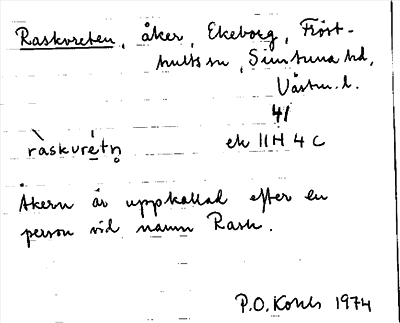 Raskvreten, åker, Ekeborg, Fröst-
hults sn, Simtuna hd,
Västm. l.
41
ràskvrétn̥ ek 11H 4 C
Åkern är uppkallad efter en
person vid namn Rask.
P.O. 1974